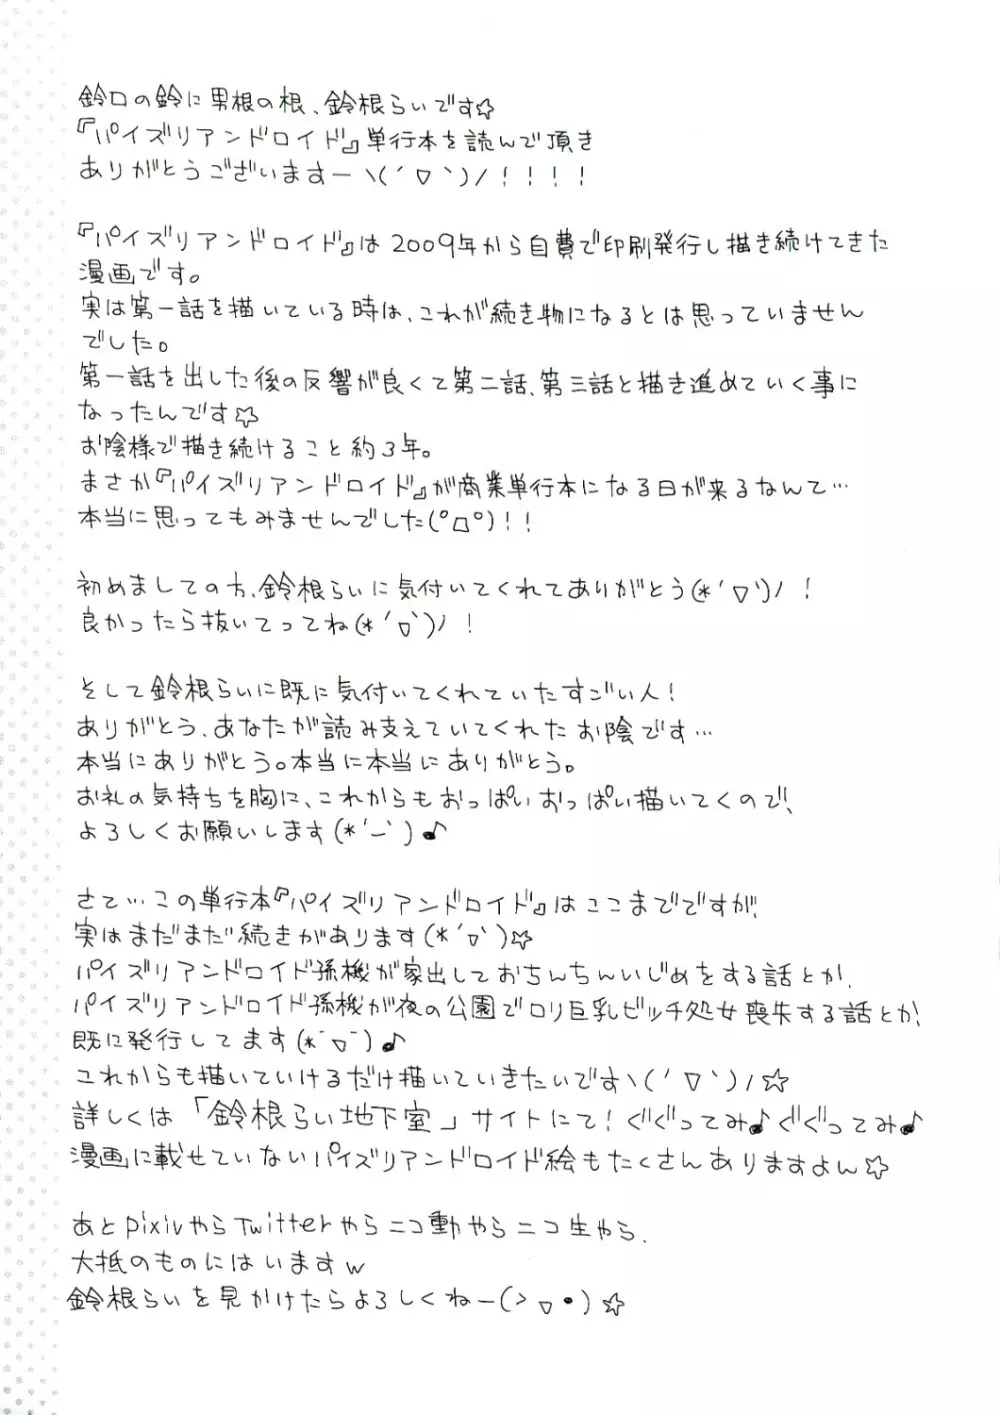 鈴口の鈴に男根の根、鈴根らいです☆
『パイズリアンドロイド』単行本を読んで頂き
ありがとうございますーヽ(´▽｀)ﾉ！！！！
『パイズリアンドロイド』は2009年から自費で印刷発行し描き続けてきた
漫画です。
実は第一話を描いている時は、これが続き物になるとは思っていません
でした。
第一話を出した後の反響が良くて第二話、第三話と描き進めていく事に
なったんです☆
お陰様で描き続けること約3年。
まさか『パイズリアンドロイド』が商業単行本になる日が来るなんて…
本当に思ってもみませんでした(°□°)！！
初めましての方、鈴根らいに気付いてくれてありがとう(*´▽｀)ﾉ！
良かったら抜いてってね(*´▽｀)ﾉ！
そして鈴根らいに既に気付いてくれていたすごい人！
ありがとう、あなたが読み支えていてくれたお陰です…
本当にありがとう。本当に本当にありがとう。
お礼の気持ちを胸に、これからもおっぱいおっぱい描いてくので、
よろしくお願いします(*´−｀)♪
さて…この単行本『パイズリアンドロイド』はここまでですが、
実はまだまだ続きがあります(*´▽｀)☆
パイズリアンドロイド孫機が家出しておちんちんいじめをする話とか、
パイズリアンドロイド孫機が夜の公園でロリ巨乳ビッチ処女喪失する話とか、
既に発行してます(*¯▽¯)♪
これからも描いていけるだけ描いていきたいですヽ(´▽｀)ﾉ☆
詳しくは「鈴根らい地下室」サイトにて！ぐぐってみ♪ぐぐってみ♪
漫画に載せていないパイズリアンドロイド絵もたくさんありますよん☆
あとpixivやらTwitterやらニコ動やらニコ生やら、
大抵のものにはいますw
鈴根らいを見かけたらよろしくねー(>▽•)☆